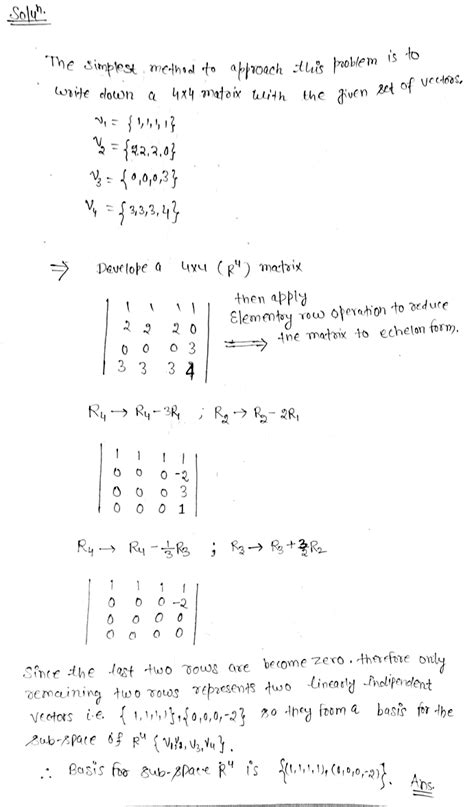 Solyn.
The simplest method to approach this problem is to
write down a 4x4 matrix with the given set of vectors.
v1 = {1,1,1,1}
v2 = {2,2,2,0}
v3 = {0,0,0,3}
v4 = {3,3,3,4}
⇒ Develope a 4x4 (R⁴) matrix
| 1 1 1 1 |
| 2 2 2 0 |
| 0 0 0 3 |
| 3 3 3 4 |
then apply
Elementry row operation to reduce
the matrix to echelon form.
R4 → R4-3R1 ; R2 → R2-2R1
| 1 1 1 1 |
| 0 0 0 -2 |
| 0 0 0 3 |
| 0 0 0 1 |
R4 → R4-1/3R3 ; R3 → R3+3/2R2
| 1 1 1 1 |
| 0 0 0 -2 |
| 0 0 0 0 |
| 0 0 0 0 |
Since the last two rows are become zero. therefore only
remaining two rows represents two linearly indipendent
vectors i.e. {1,1,1,1},{0,0,0,-2} so they form a basis for the
sub-space of R⁴ {v1,v2,v3,v4}.
∴ Basis for sub-space R⁴ is {(1,1,1,1),(0,0,0,-2)}. Ans.